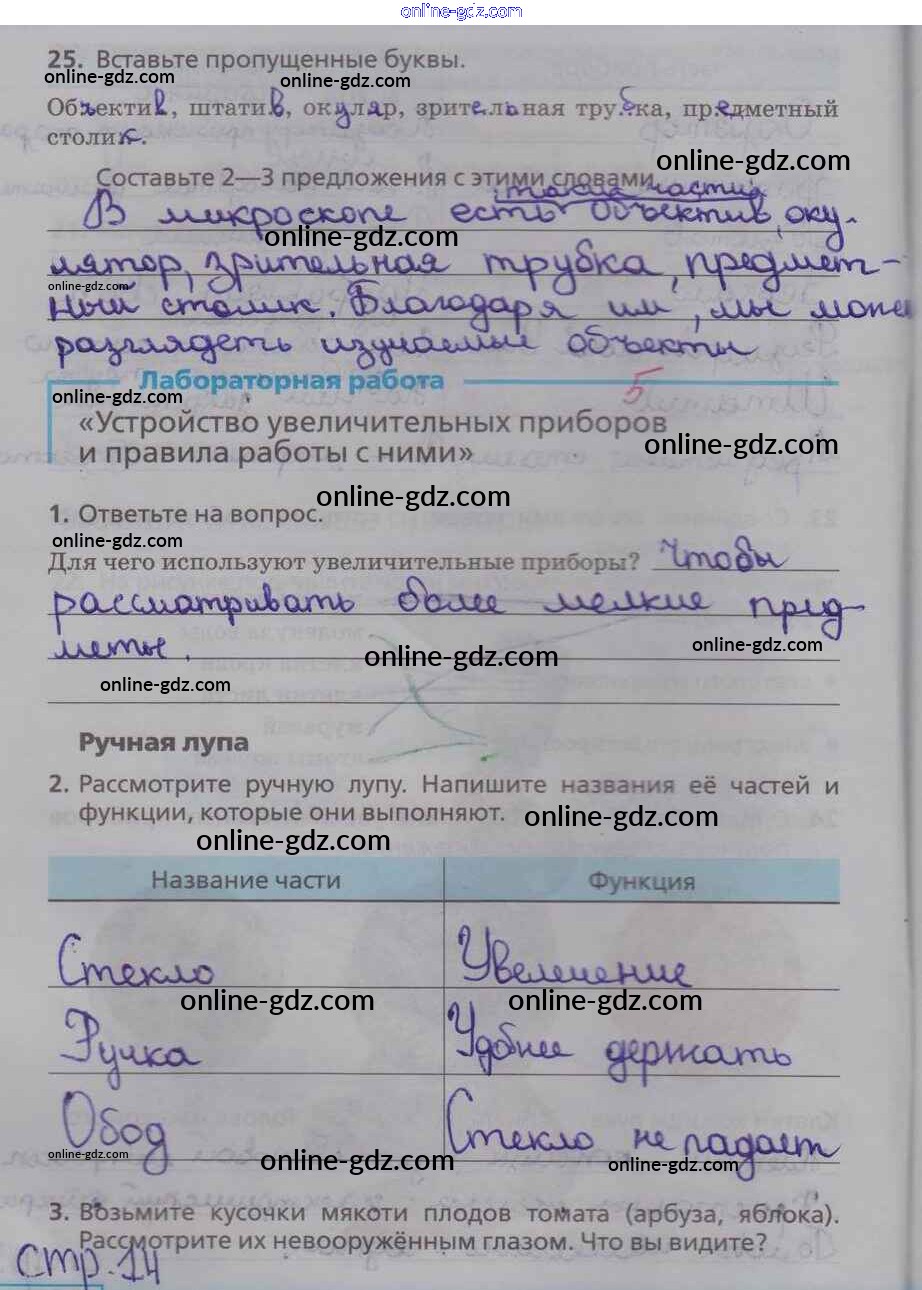 online-gdz.com
25. Вставьте пропущенные буквы.
online-gdz.com online-gdz.com
Объектив, штатив, окуляр, зрительная трубка, предметный
столик.
online-gdz.com
Составьте 2—3 предложения с этими словами.
такие части
В микроскопе есть объектив, оку-
online-gdz.com
лятор, зрительная трубка, предмет-
online-gdz.com
ный столик. Благодаря им, мы може
разглядеть изучаемые объекты
Лабораторная работа
5
online-gdz.com
«Устройство увеличительных приборов
online-gdz.com
и правила работы с ними»
online-gdz.com
1. Ответьте на вопрос.
online-gdz.com
Для чего используют увеличительные приборы? Чтобы
рассматривать более мелкие пред-
меты.
online-gdz.com
online-gdz.com
online-gdz.com
Ручная лупа
2. Рассмотрите ручную лупу. Напишите названия её частей и
функции, которые они выполняют.
online-gdz.com
online-gdz.com
Название части Функция
Стекло Увеличение
online-gdz.com online-gdz.com
Ручка Удобнее держать
Обод Стекло не падает
online-gdz.com online-gdz.com online-gdz.com
3. Возьмите кусочки мякоти плодов томата (арбуза, яблока).
Рассмотрите их невооружённым глазом. Что вы видите?
стр. 14